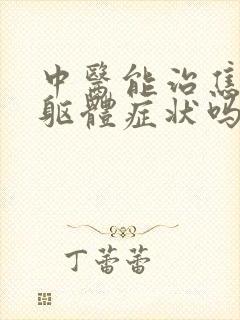 中醫能治焦
躯體症状吗
丁蕾蕾